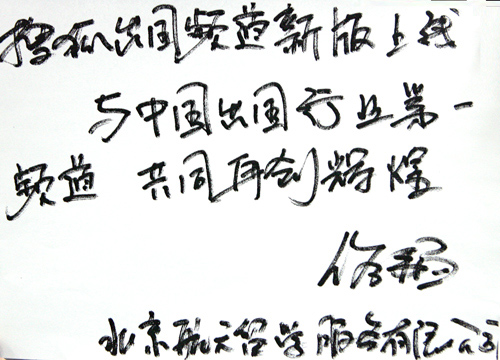 搜狐出国频道新版上线
与中国出国行业第一
频道 共同再创辉煌
北京航天留学服务有限公司